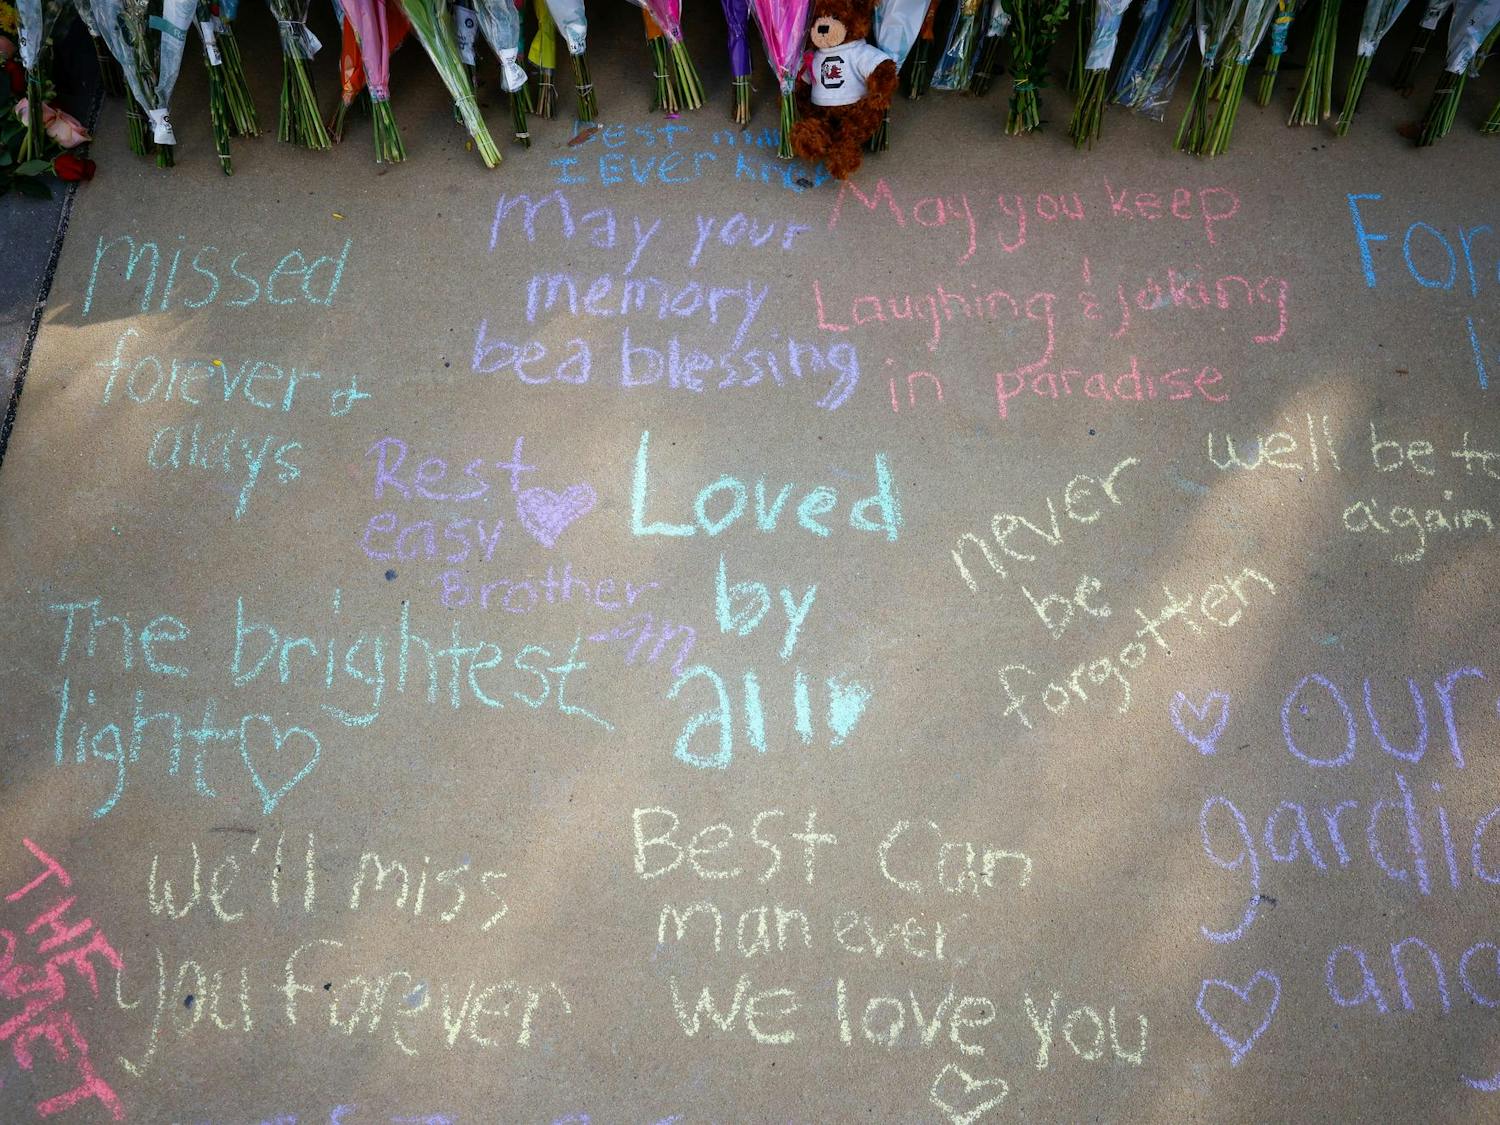 Best man
I Ever knew
May your
memory
be a blessing
May you keep
Laughing & joking
in paradise
For
missed
forever &
alays
Rest
easy
Brother
Loved
by
all
never
be
forgotten
we'll be to
again
The brightest
light
our
gardi
ang
We'll miss
you forever
Best Can
man ever
We love you
THE
C